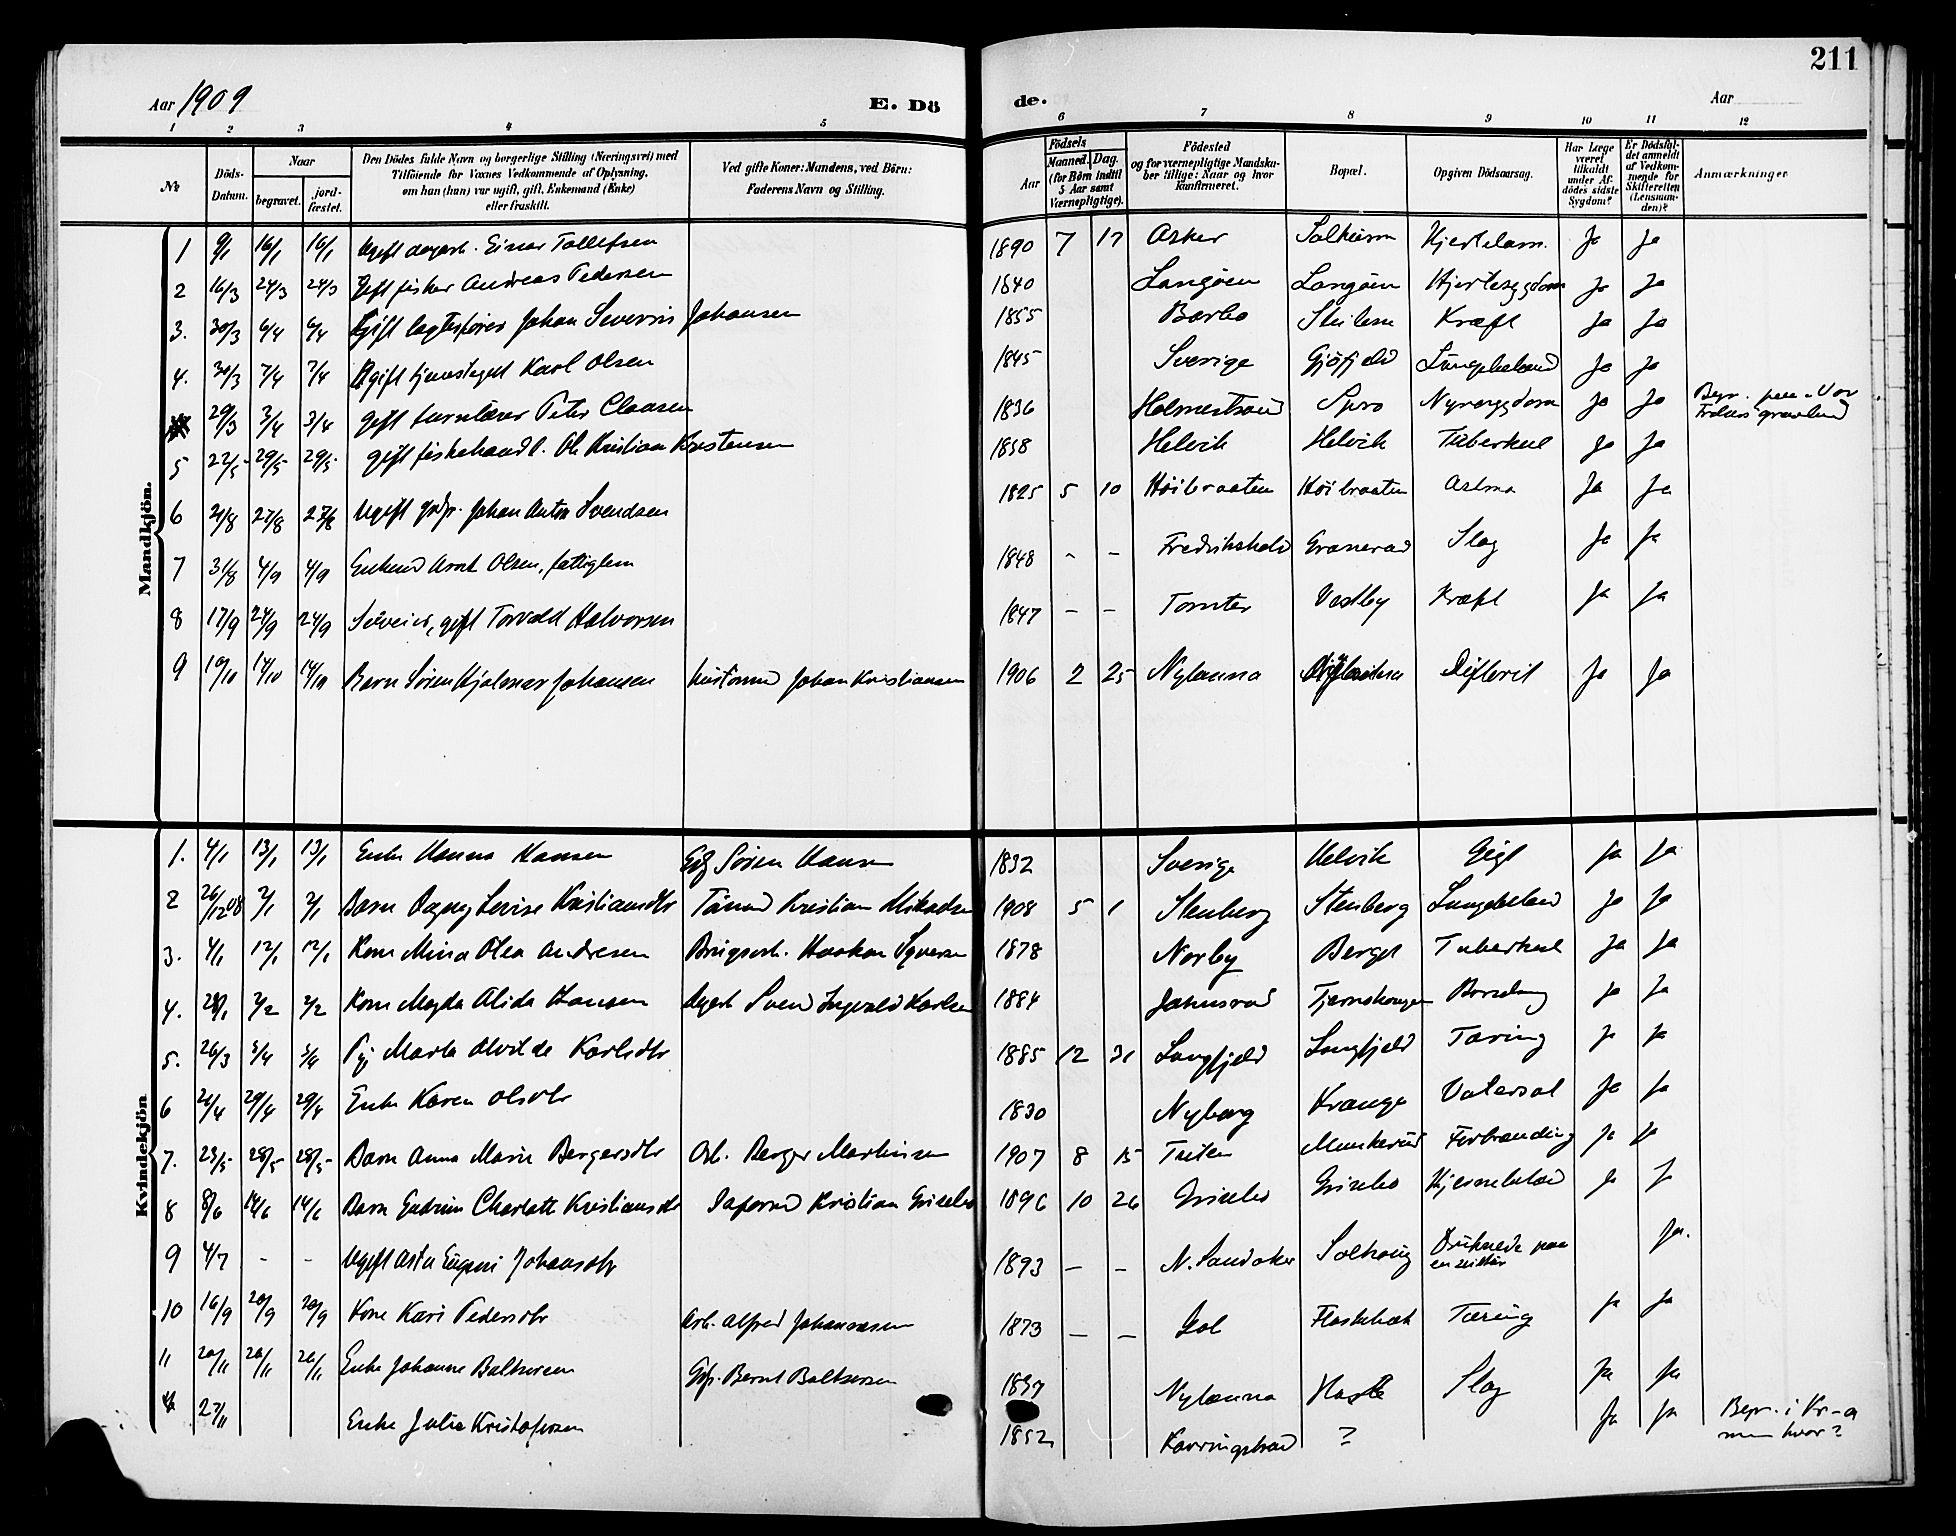 211
Aar 1909
E. Dö
de.
Aar
1 2 3 4 5 6 7 8 9 10 11 12
№
Döds-Datum.
Naar
begravet.
jord-fæstet.
Den Dödes fulde Navn og borgerlige Stilling (Næringsvei) med Tilföiende for Voxnes Vedkommende af Oplysning, om han (hun) var ugift, gift, Enkemand (Enke) eller fraskilt.
Ved gifte Koner: Mandens, ved Börn: Faderens Navn og Stilling.
Födsels
Aar
Maaned.
Dag.
(for Börn indtil 5 Aar samt Værnepligtige).
Födested og for værnepligtige Mandskaber tillige: Naar og hvor konfirmeret.
Bopæl.
Opgiven Dödsaarsag.
Har Læge været tilkaldt under Afdödes sidste Sygdom?
Er Dödsfaldet anmeldt af Vedkommende for Skifteretten (Lensmanden)?
Anmærkninger
Mandkjön.
1 9/1 16/1 16/1 Ugift dagarb. Einar Tollefsen 1890 7 17 Asker Solheim Hjertelam. Ja Ja
2 16/3 24/3 24/3 Gift fisker Andreas Pedersen 1840 Langöen Langöen Hjertesygdom Ja Ja
3. 30/3 6/4 6/4 Gift Johan Severin Johansen 1855 Barbo Kræft Ja Ja
4. 30/3 7/4 7/4 gift Karl Olsen 1845 Sverige Gjöfjeld Lungebetænd Ja Ja
29/3 3/4 3/4 gift Peter Claasen 1836 Holmestrand Spro Nyresygdom Ja Ja Begr. paa Vor Frelsers gravlund
5 22/5 29/5 29/5 gift fiskehandl. Ole Kristian Kristensen 1858 Helvik Helvik Tuberkul Ja Ja
6 21/8 27/8 27/8 Ugift Johan Anton Svendsen 1825 5 10 Höibraaten Höibraaten Astma Ja Ja
7 31/8 4/9 4/9 Enkem Arnt Olsen, fattiglem 1848 - - Fredrikshald Granerud Slag Ja Ja
8 17/9 24/9 24/9 gift Torvald Halvorsen 1847 - - Tomter Vestby Kræft Ja Ja
9 10/10 14/10 14/10 Barn Sören Hjalmar Johansen Johan Kristiansen 1906 2 25 Nylænna Difterit Ja Ja
Kvindekjön
1. 4/1 13/1 13/1 Enke Hanna Hansen Sören Hansen 1832 Sverige Helvik Gigt Ja Ja
2 26/12 08 2/1 2/1 Barn Dagny Lovise Kristiansdtr Kristian 1908 5 1 Stenberg Stenberg Lungebetænd Ja Ja
3. 4/1 12/1 12/1 Kone Mina Olea Andresen Haakon 1878 Norby Berget Tuberkul Ja Ja
4. 28/1 2/2 2/2 Kone Magda Alida Hansen Sven Ingvald Karlsen 1884 Jahnsrud Ja Ja
5. 26/3 Marta Alvilde Karlsdtr 1885 12 31 Langfjeld Langfjeld Tæring Ja Ja
6 21/4 29/4 29/4 Enke Karen Olsdtr 1830 Nyborg Krange Vatersot Ja Ja
7. 23/5 28/5 28/5 Barn Anna Marie Bergersdtr Arb. Berger Martinsen 1907 8 15 Tuten Munkerud Forbrænding Ja Ja
8 8/6 14/6 14/6 Barn Gudrun Charlotte Kristiansdtr Kristian Grisebo 1896 10 26 Grisebo Grisebo Hjernebetænd Ja J
9 4/7 - - Ugift Asta Eugeni Johansdtr 1893 - - N. Sandaker Solhaug Druknede paa en Ja.
10 16/9 20/9 20/9 Kone Kari Pedersdtr Arb. Alfred Johannesen 1873 - - Gol Flaskebæk Tæring Ja Ja
11 20/11 26/11 26/11 Enke Johanne Baltsersen Bernt Baltsersen 1837 Nylænna Slag Ja Ja
27/11 Enke Julie Kristofersen 1852 ? Ja Ja Begr. i Kr-a men hvor?